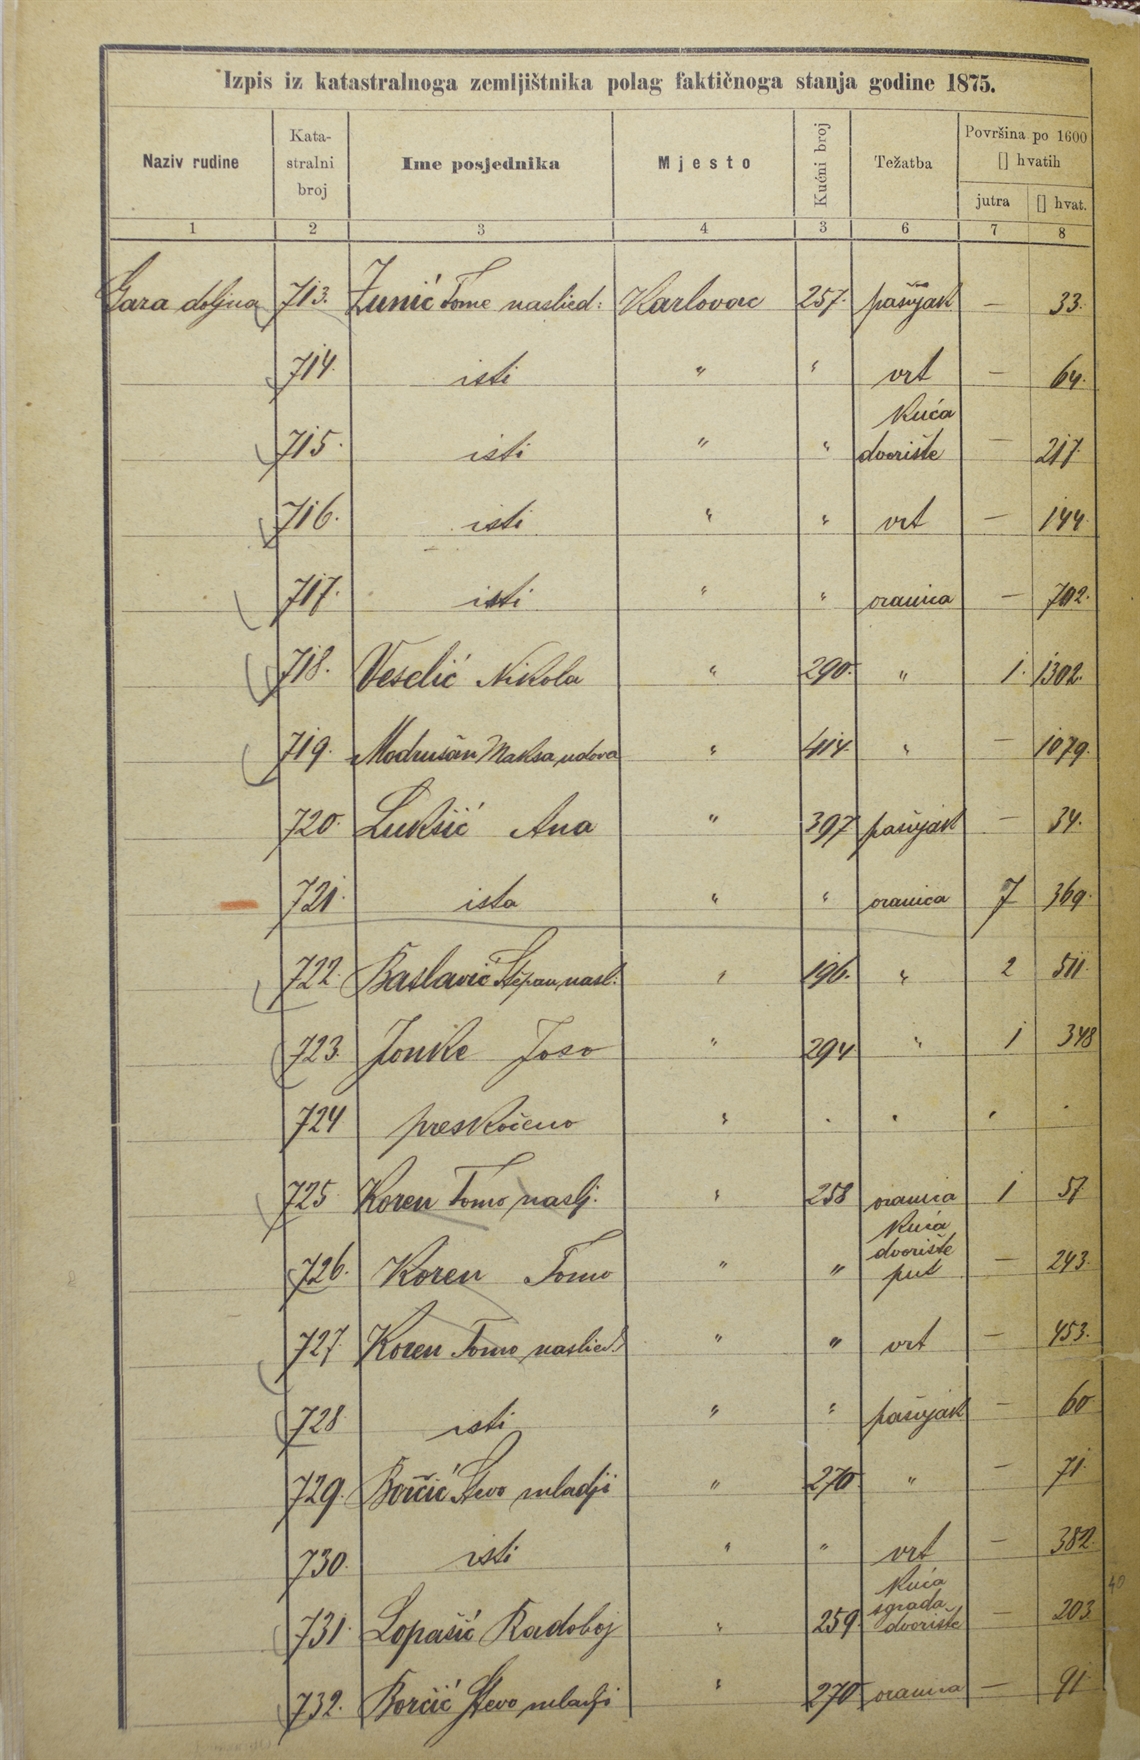 Izpis iz katastralnoga zemljištnika polag faktičnoga stanja godine 1875.
Naziv rudine Kata-stralni broj Ime posjednika Mjesto Kućni broj Težatba Površina po 1600 [] hvatih
jutra [] hvat.
1 2 3 4 3 6 7 8
Gaza doljna 713. Zunić Tome naslied: Karlovac 257. pašnjak — 33.
714. isti " " vrt — 64.
715. isti " " Kuća dvorište — 217.
716. isti " " vrt — 144.
717. isti " " oranica — 702.
718. Veselić Nikola " 290. " 1. 1302.
719. Modrušan Maksa udova " 414. " — 1079.
720. Lukšić Ana " 397 pašnjak — 34.
721. ista " " oranica 7 369.
722. Stepan nasl. " 196. " 2 511.
723. Jonke Joso " 294 " 1 348
724 preskočeno " . . . .
725 Koren Tomo naslj. " 258 oranica 1 57
726. Koren Tomo " " Kuća dvorište put — 243.
727. Koren Tomo naslied. " " vrt — 453.
728 isti " " pašnjak — 60
729. Borčić Stevo mladji " 270 " — 71.
730. isti " " vrt — 382.
731. Lopašić Radoboj " 259. Kuća sgrada dvorište — 203
40
732. Borčić Stevo mladji " 270 oranica — 91.